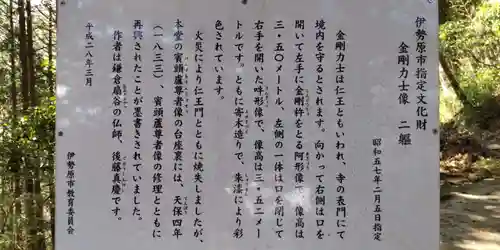 伊勢原市指定文化財
金剛力士像　二軀
昭和五七年二月五日指定
金剛力士は仁王ともいわれ、寺の表門にて
境内を守るとされます。向かって右側は口を
開いて左手に金剛杵をとる阿形像で、像高は
三・五〇メートル、左側の一体は口を閉じて
右手を開いた吽形像で、像高は三・五二メー
トルです。ともに寄木造りで、朱漆により彩
色されています。
火災により仁王門とともに焼失しましたが、
本堂の賓頭盧尊者像の台座裏には、天保四年
（一八三三）、賓頭盧尊者像の修理とともに
再興されたことが墨書きされていました。
作者は鎌倉扇谷の仏師、後藤真慶です。
平成二八年三月
伊勢原市教育委員会